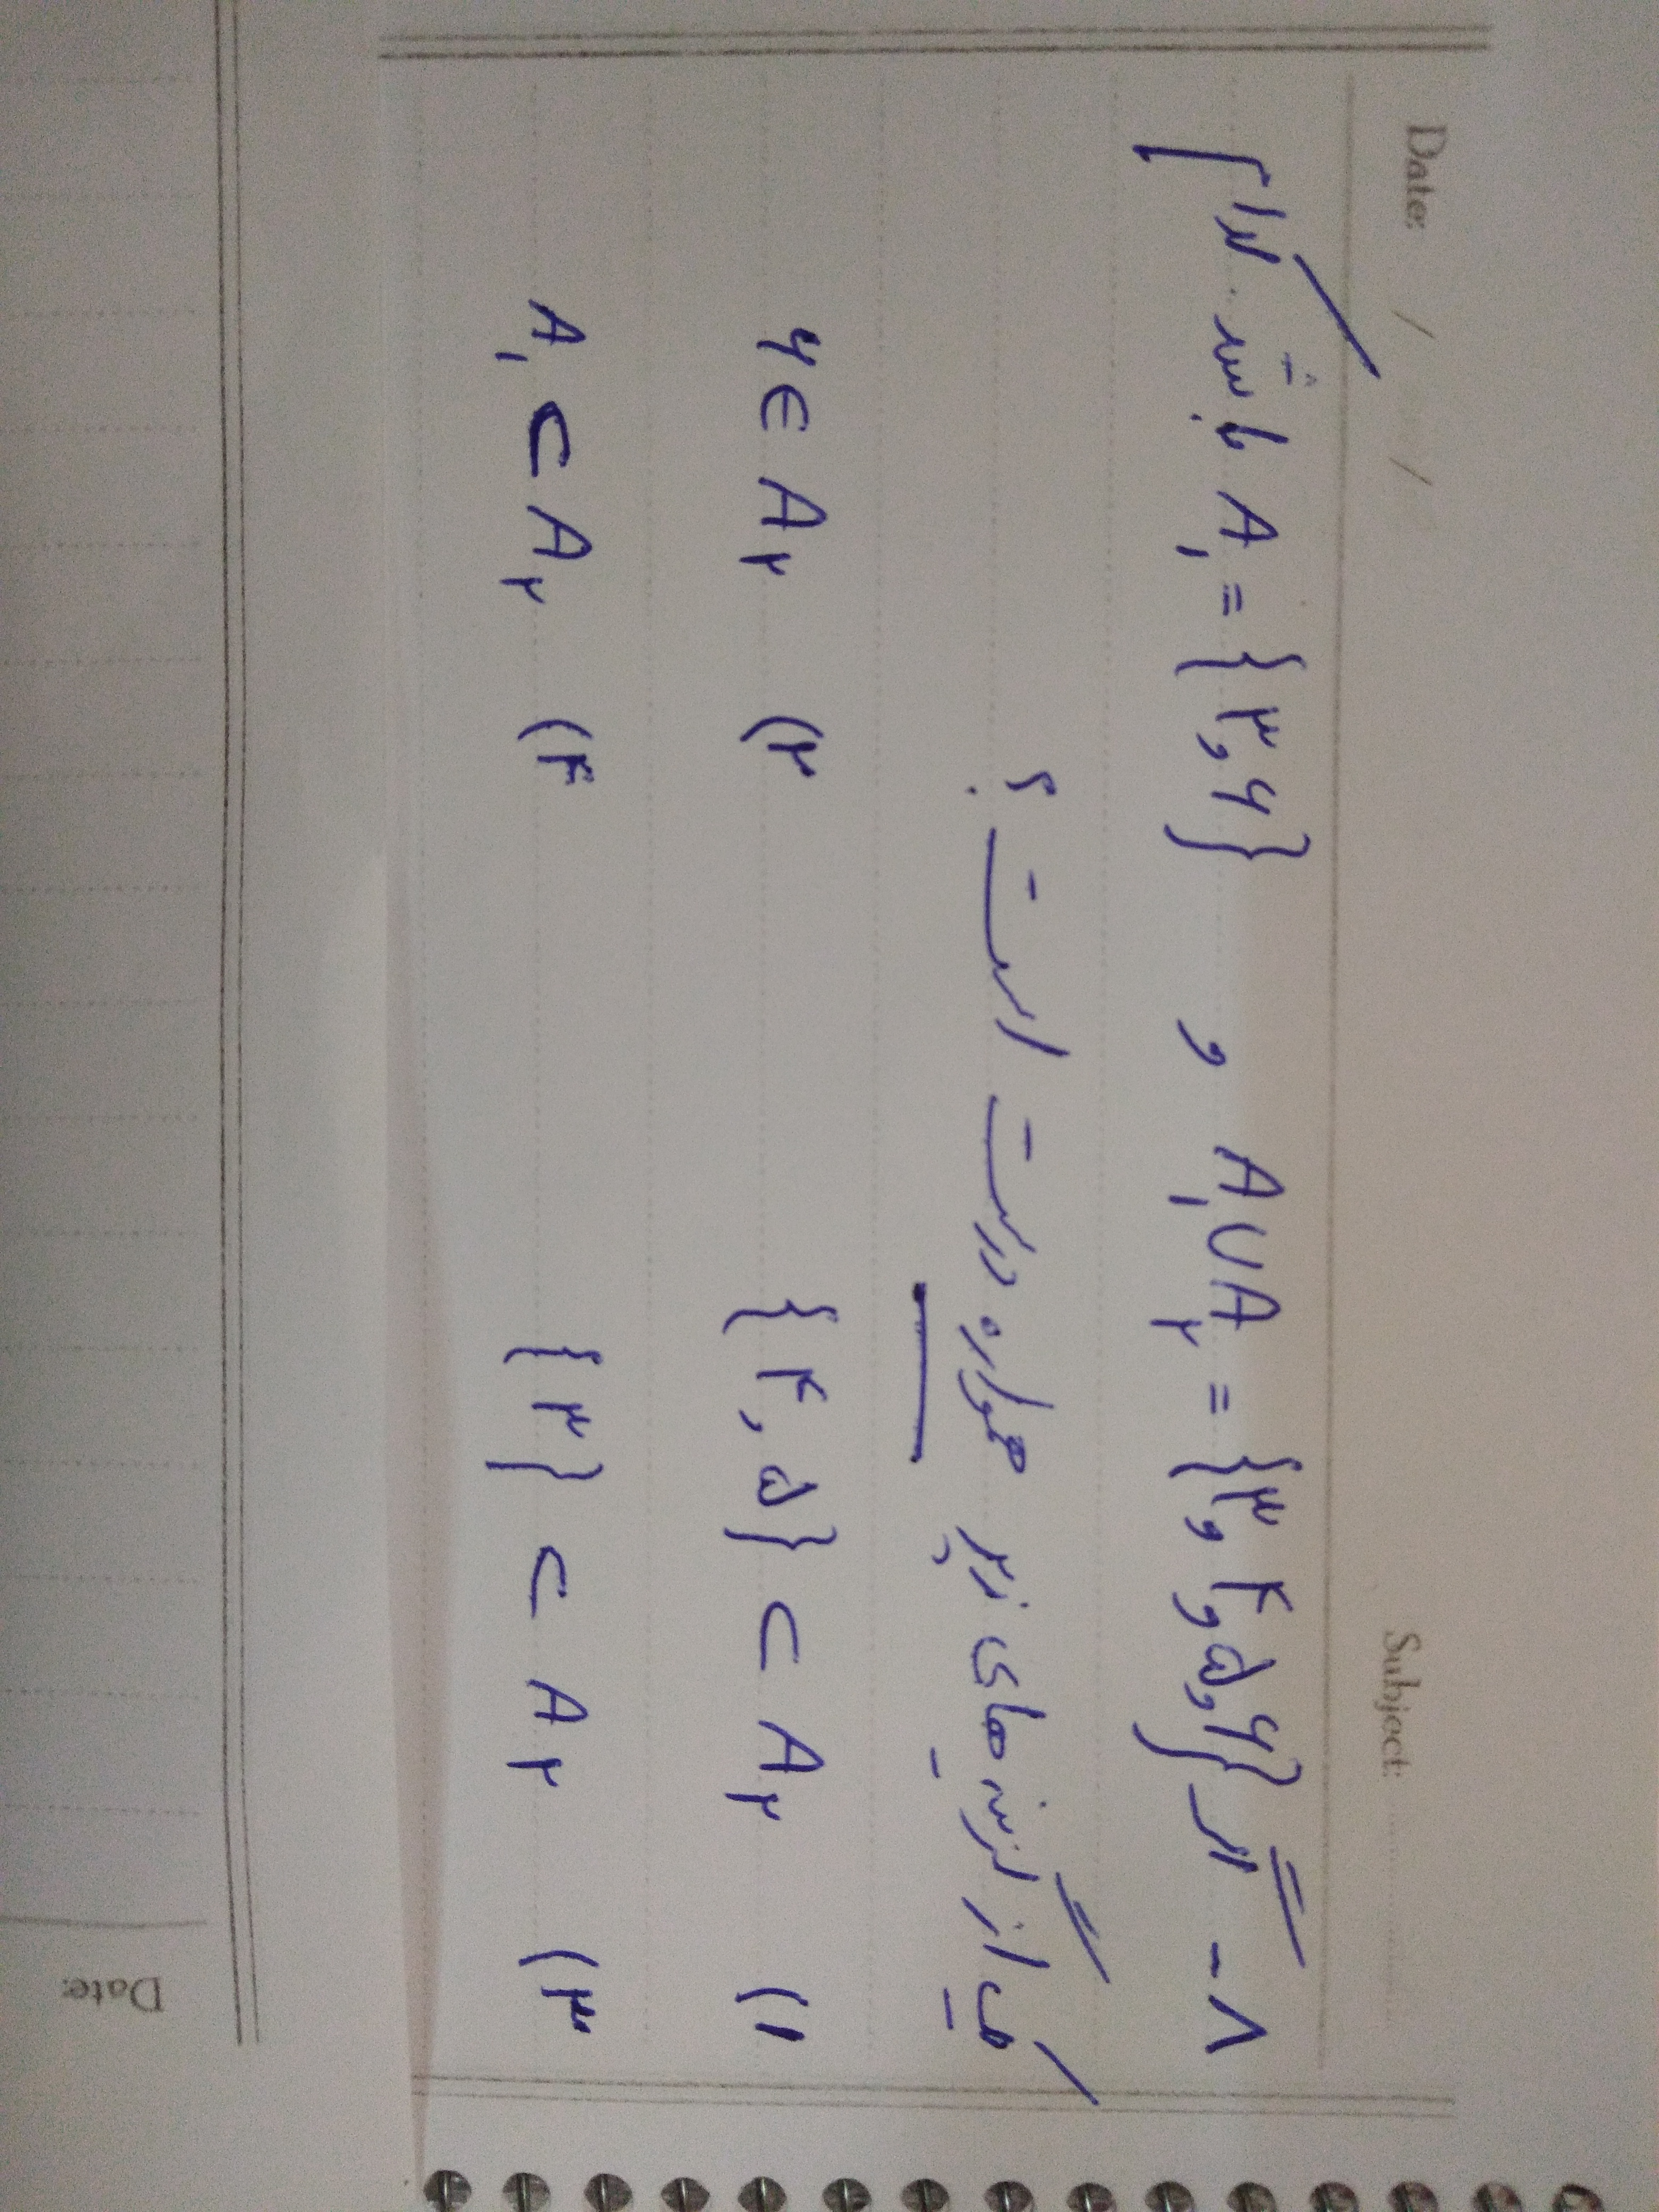 Date: / / Subject:
۸- اگر A₁∪A₂ = {۳, ۴, ۵, ۶} و A₁ = {۳, ۶} باشد. کدام
یک از گزینه های زیر همواره درست است؟
۱) {۴, ۵} ⊂ A₂ ۲) ۶ ∈ A₂
۳) {۳} ⊂ A₂ ۴) A₁ ⊂ A₂
Date: